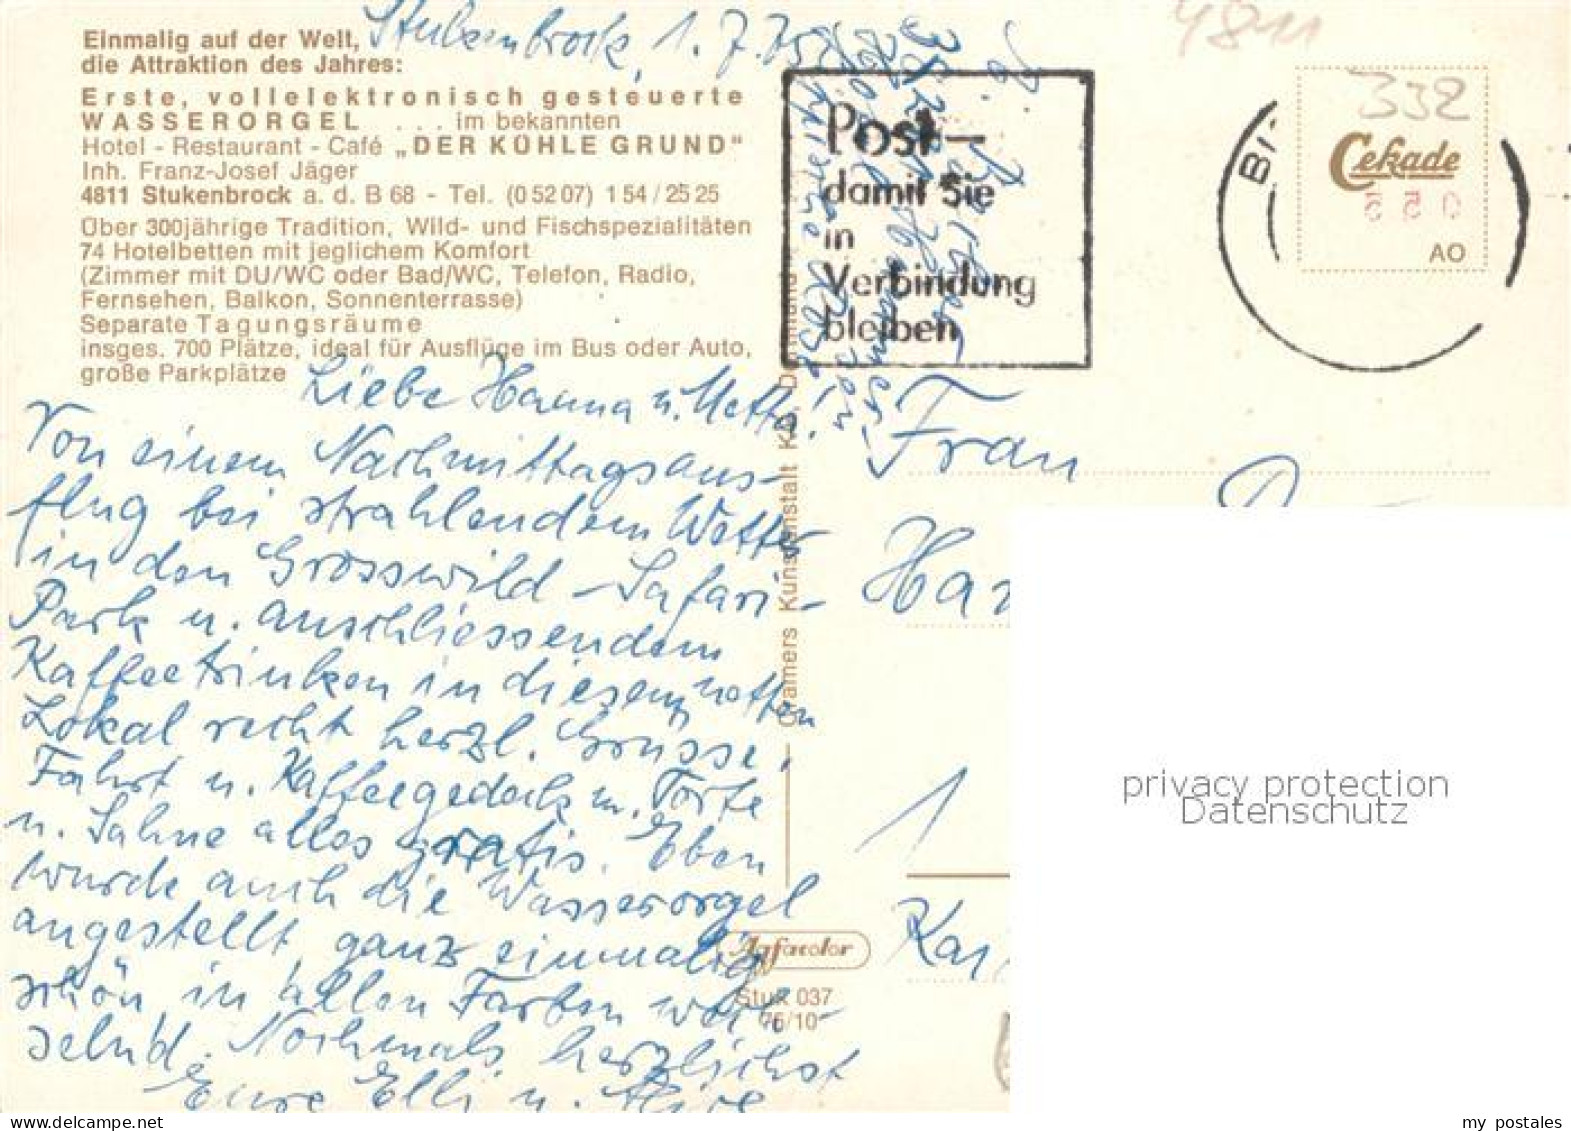 Einmalig auf der Welt,
die Attraktion des Jahres:
Erste, vollelektronisch gesteuerte
WASSERORGEL ... im bekannten
Hotel - Restaurant - Café „DER KÜHLE GRUND"
Inh. Franz-Josef Jäger
4811 Stukenbrock a. d. B 68 - Tel. (0 52 07) 1 54 / 25 25
Über 300jährige Tradition, Wild- und Fischspezialitäten
74 Hotelbetten mit jeglichem Komfort
(Zimmer mit DU/WC oder Bad/WC, Telefon, Radio,
Fernsehen, Balkon, Sonnenterrasse)
Separate Tagungsräume
insges. 700 Plätze, ideal für Ausflüge im Bus oder Auto,
große Parkplätze
Stukenbrock, 1. 7. 75
Liebe Hanna u. Metta!
Von einem Nachmittagsaus-
flug bei strahlendem Wetter
in den Grosswild-Safari-
Park u. anschliessendem
Kaffeetrinken in diesem netten
Lokal recht herzl. Grüsse.
Fahrt u. Kaffeegedeck m. Torte
u. Sahne alles gratis. Eben
wurde auch die Wasserorgel
angestellt, ganz einmalig
schön, in allen Farben wech-
selnd. Nochmals herzlichst
Eure Elli u.
Cramers Kunstanstalt KG, Dortmund
Agfacolor
Stuk 037
76/10
Post —
damit Sie
in
Verbindung
bleiben
4811
332
BI
Cekade
0 5 5
AO
Frau
Han
1
Kar
privacy protection
Datenschutz
my postales